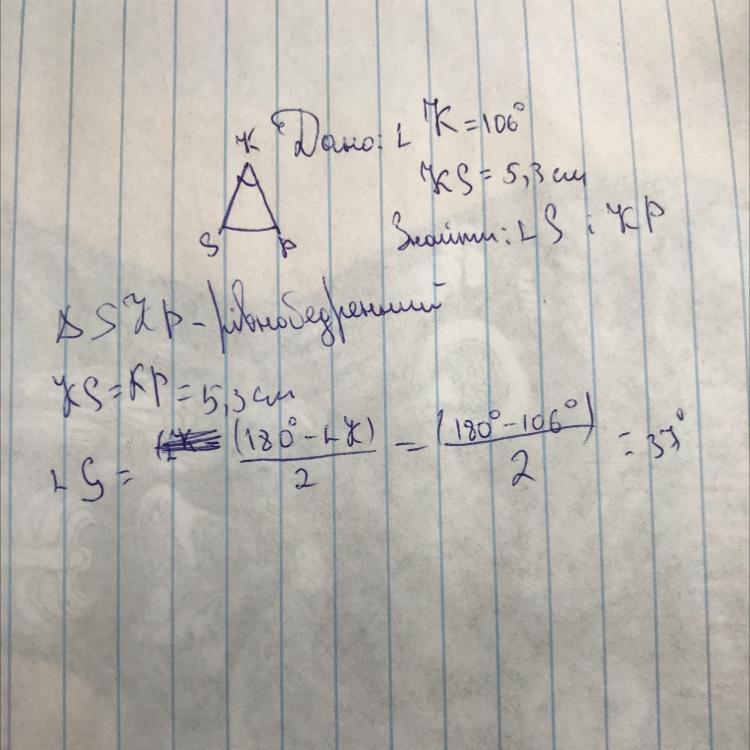 K
S P
Дано: ∟K = 106°
KS = 5,3 см
Знайти: ∟S ; KP
∆ SKP - рівнобедренний
KS = KP = 5,3 см
∟S = (180° - ∟K) / 2 = (180° - 106°) / 2 = 37°